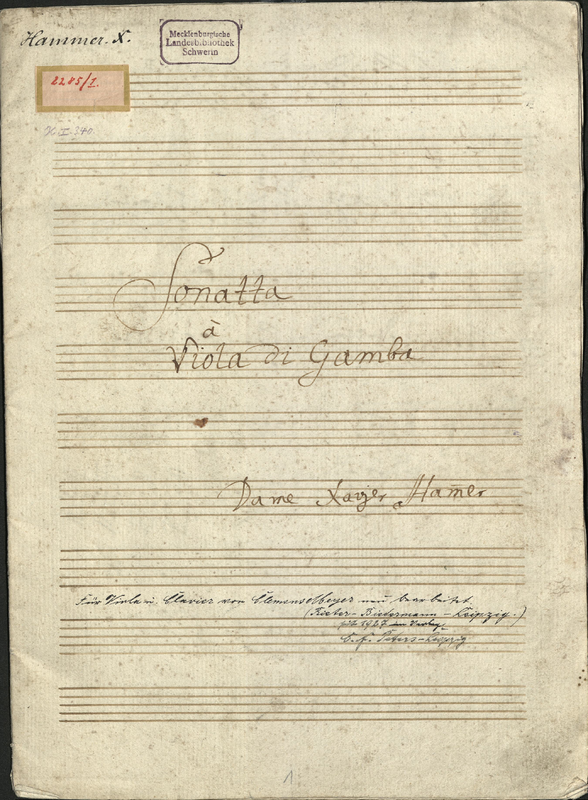 Hammer. X.
Mecklenburgische
Landesbibliothek
Schwerin
2285/I.
Sonatta
à
Viola di Gamba
Da me Xavjer Ham̄er
Für Viola u. Clavier von Clemens Meyer neu bearbeitet
(Rieter-Biedermann - Leipzig.)
seit 1927 im Verlag
C. F. Peters-Leipzig
1